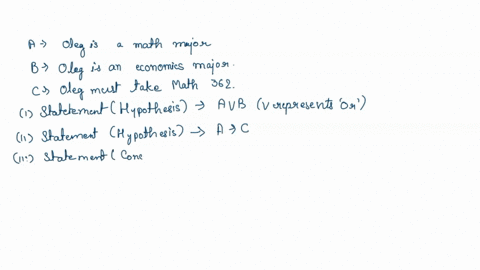 A → Oleg is a math major
B → Oleg is an economics major.
C → Oleg must take Math 362.
(i) Statetement (Hypothesis) → A∨B (∨ represents 'Or')
(ii) Statement (Hypothesis) → A → C
(iii) Statement ( Conc